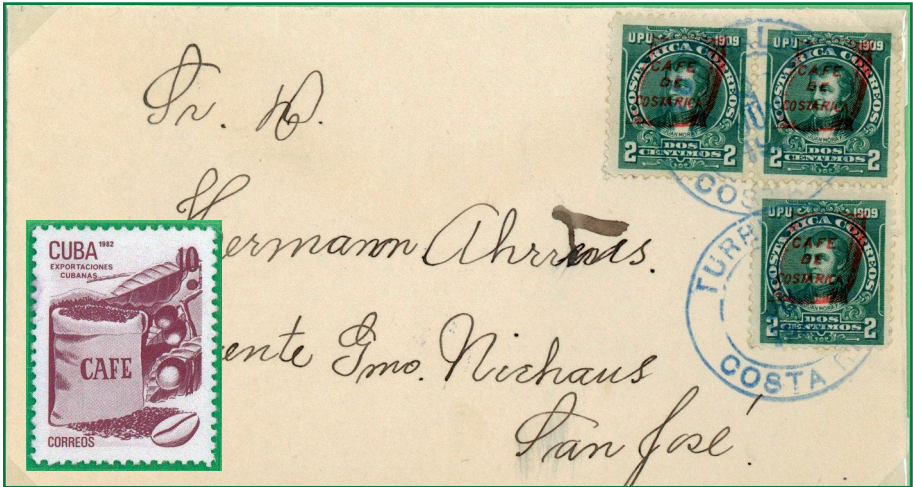 Sr. D.
Hermann Ahrens.
ente Gmo. Niehaus
San José.
UPU 1909
COSTA RICA CORREOS
CAFE
DE
COSTA RICA
2 DOS CENTIMOS 2
UPU 1909
COSTA RICA CORREOS
CAFE
DE
COSTA RICA
2 DOS CENTIMOS 2
COS
UPU 1909
COSTA RICA CORREOS
CAFE
DE
COSTA RICA
2 DOS CENTIMOS 2
TURR
COSTA
CUBA 1982 10
EXPORTACIONES
CUBANAS
CAFE
CORREOS